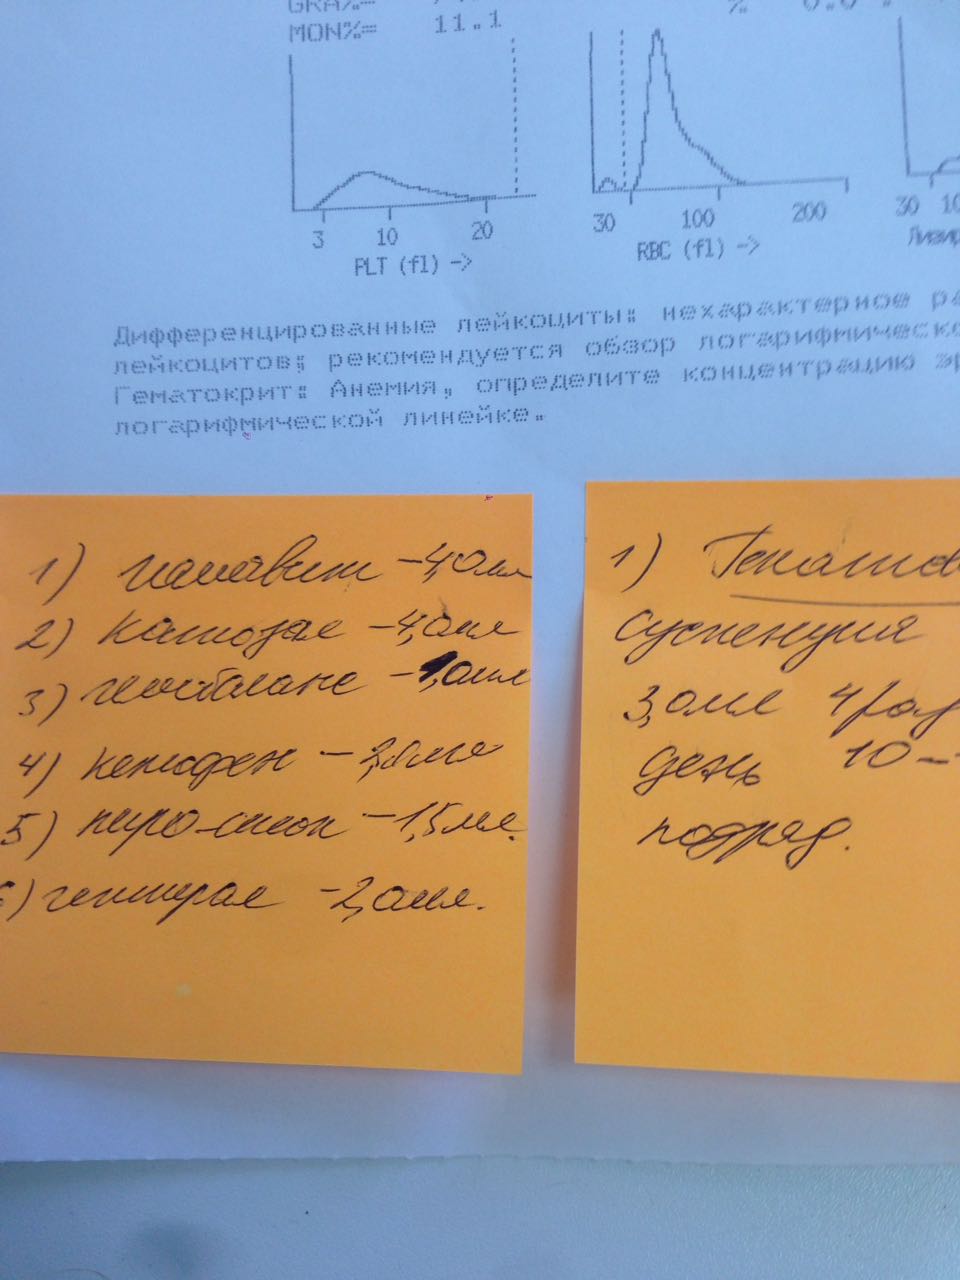 GRA%=
% 0.0
MON%= 11.1
3 10 20
PLT (fl) ->
30 100 200
RBC (fl) ->
30 10
Лизир
Дифференцированные лейкоциты: нехарактерное ра
лейкоцитов; рекомендуется обзор логарифмическо
Гематокрит: Анемия, определите концентрацию эр
логарифмической линейке.
1) гамавит - 4,0мл
2) катозал - 4,0мл
3) гемобаланс - 1,0мл
4) кетофен - 2,0мл
5) пиро-стоп - 1,5мл.
6) гептрал - 2,0мл.
1) Гепатов
суспензия
3,0мл 4 раз
день 10
подряд.